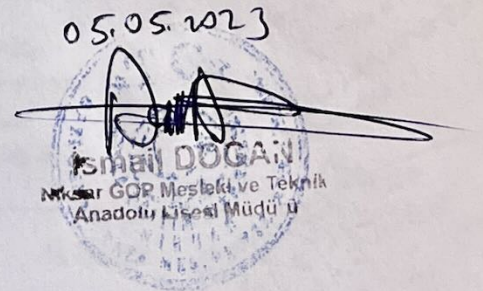 05.05.2023
İsmail DOĞAN
Niksar GOP Mesleki ve Teknik
Anadolu Lisesi Müdürü